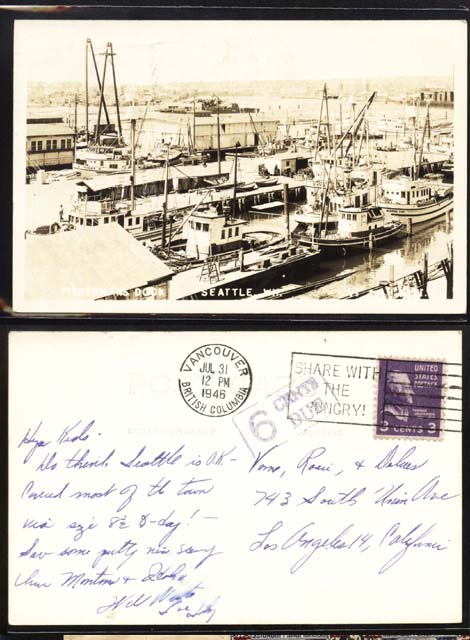 FISHERMANS DOCK SEATTLE, WN.
VANCOUVER
JUL 31
12 PM
1946
BRITISH COLUMBIA
SHARE WITH
THE
HUNGRY!
6 CENTS
DUE
UNITED
STATES
POSTAGE
3 CENTS 3
CORRESPONDENCE ADDRESS
Hya Kids-
Do think Seattle is O.K. -
Covered most of the town
via size 8½ D-day! -
Saw some pretty nice scenery
thru Montana & Idaho
Will Write
Vone, Rosie, & Dolores
743 South Union Ave
Los Angeles 14, California